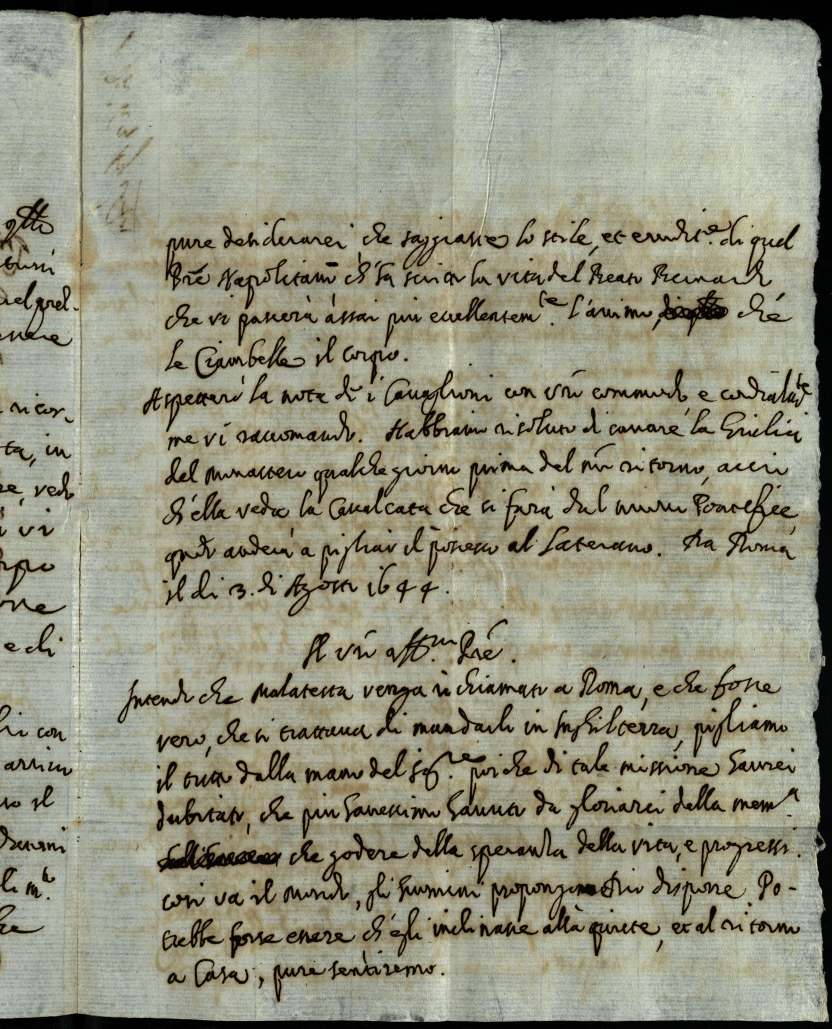 pure desiderarei che saggiaste lo stile, et erudit.e di quel
Pre Napolitano ch'ha scritto la vita del Beato Bernardo
che vi pascerà assai più eccellentem.te l'animo che
le Ciambelle il corpo.
Aspettarò la nota de i Cauaglioni con vro commodo, e cordialm.te
me vi raccomando. Habbiamo risoluto di cauare la Giulia
del monastero qualche giorno prima del mio ritorno, acciò
ch'ella veda la Caualcata che si farà dal nuouo Pontefice,
qndo anderà a pigliar il possesso al Laterano. Da Roma
il di 3. di Agosto 1644.
Il vro aff.mo Pre.
Intendo che Malatesta venga richiamato a Roma, e che fosse
vero, che si trattaua di mandarlo in Inghilterra, pigliamo
il tutto dalla mano del Sig.re poiche di tale missione haurei
dubitato, che più hauessimo hauuto da gloriarci della mem.a
che godere della speranza della vita, e progressi.
così va il mondo, gli huomini propongono Dio dispone Po-
trebbe forse essere ch'egli inclinasse alla quiete, et al ritorno
a Casa, pure sentiremo.
gtto
ricor-
ta, in
re, vedo
vi
e di
con
il